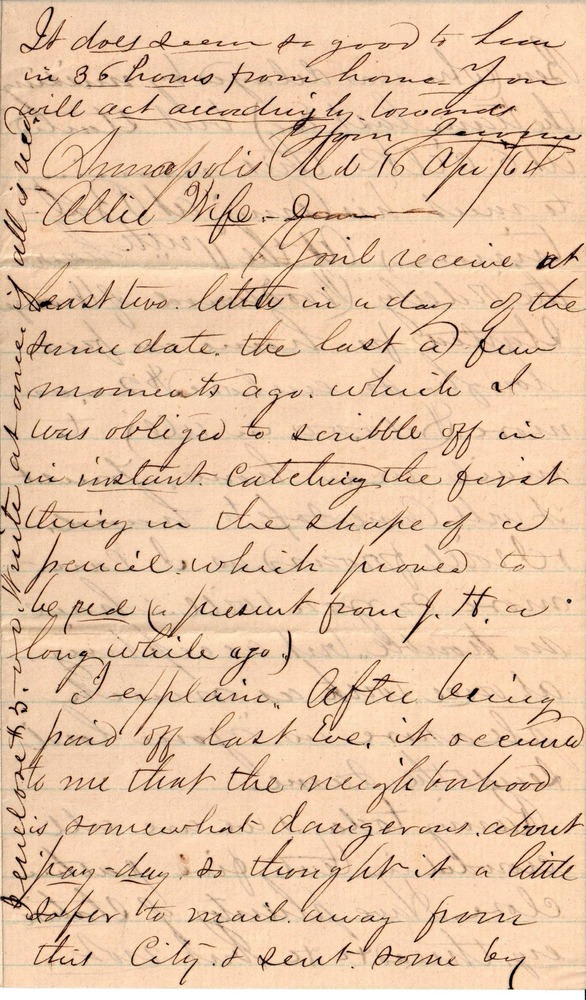 It does seem so good to him
in 36 hours from home. You
will act accordingly. towards
Your Jerome
Annapolis Md 16 Apr /64
Allie Wife. -
You'l receive at
least two. letter in a day of the
same date. the last a few
moments ago. which I
was obliged to scribble off in
in instant. Catching the first
thing in the shape of a
pencil. which proved to
be red (a present from J. H. a
long while ago.)
I explain. After being
paid off last Eve. it occurred
to me that the neighborhood
is somewhat dangerous. about
pay-day. so thought it a little
safer to mail. away from
this City. & sent. some by
I enclose $5.00. Write at once if all is recd.